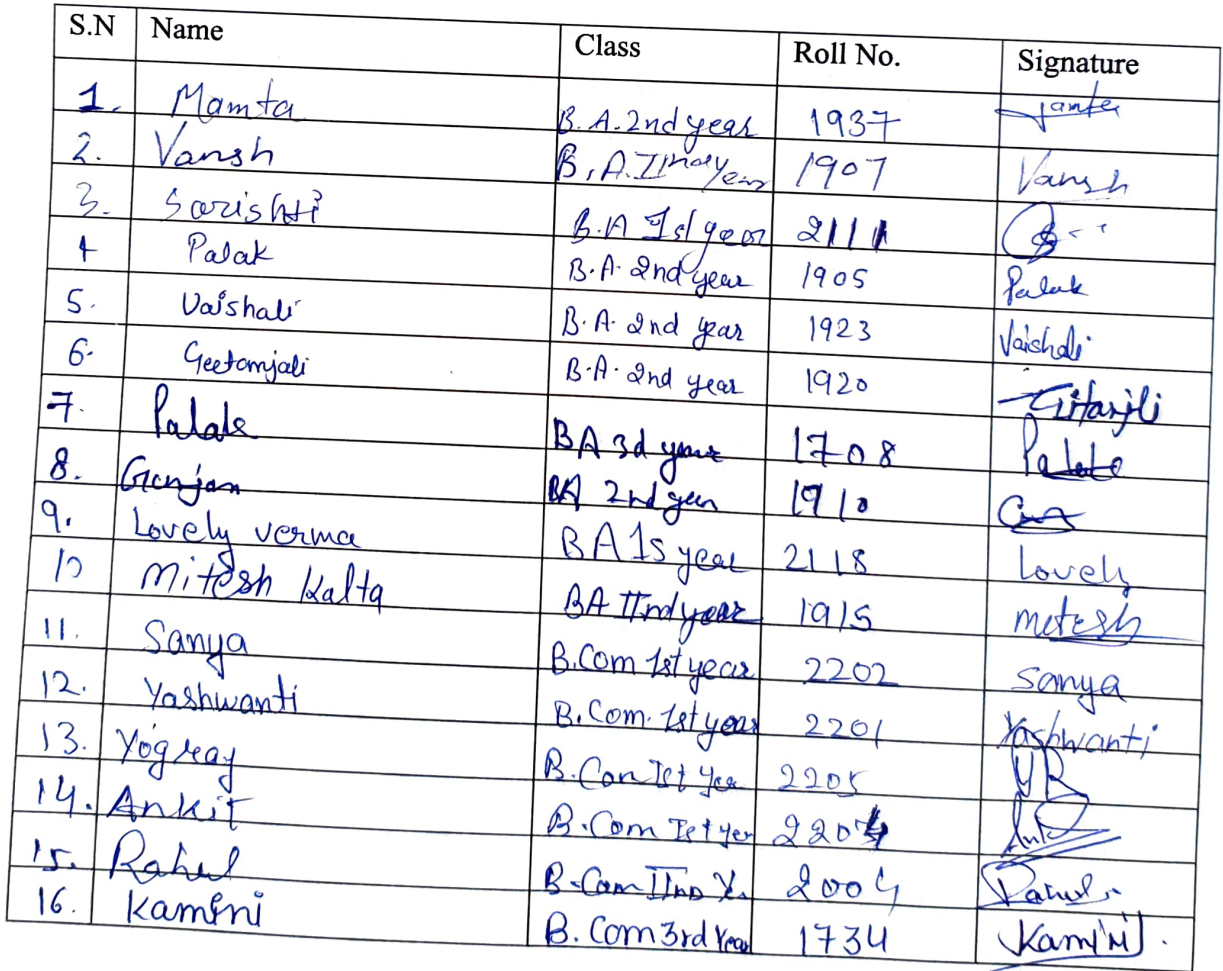 S.N Name Class Roll No. Signature
1. Mamta B.A. 2nd year 1937
2. Vansh B.A. IInd Year 1907 Vansh
3. Sarishti B.A Ist year 2111
4 Palak B.A. 2nd year 1905 Palak
5. Vaishali B.A. 2nd year 1923 Vaishali
6. Geetamjali B.A. 2nd year 1920 Gitanjli
7. Palak BA 3d year 1708 Palak
8. Gunjan BA 2nd year 1910
9. Lovely verma BA 1s year 2118 Lovely
10 Mitesh Kalta BA IInd year 1915 mitesh
11. Sanya B.Com 1st year 2202 Sanya
12. Yashwanti B.Com. 1st year 2201 Yashwanti
13. Yograj B.Com Ist Year 2205 YR
14. Ankit B.Com Ist yer 2204 Ankit
15. Rahul B.Com IInd Y. 2004 Rahul
16. Kamini B.Com 3rd Year 1734 Kamini